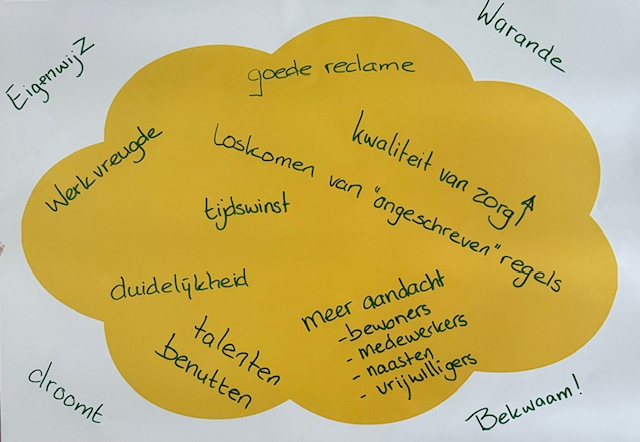 EigenwijZ
Warande
goede reclame
Werkvreugde
loskomen van "ongeschreven" regels
kwaliteit van zorg ↑
tijdswinst
duidelijkheid
talenten
benutten
meer aandacht
- bewoners
- medewerkers
- naasten
- vrijwilligers
droomt
Bekwaam!